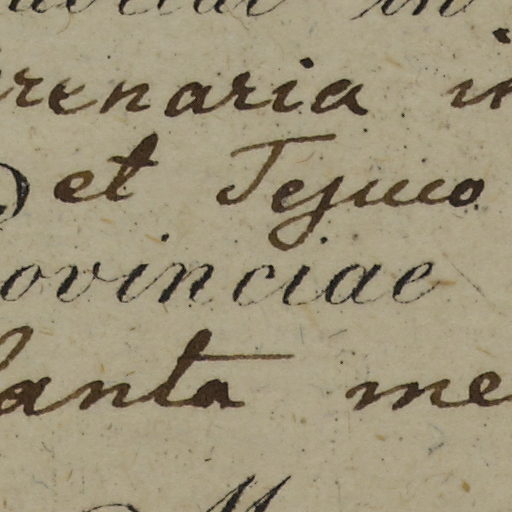 renaria in
et Tejuco
ovinciae
lanta me
M